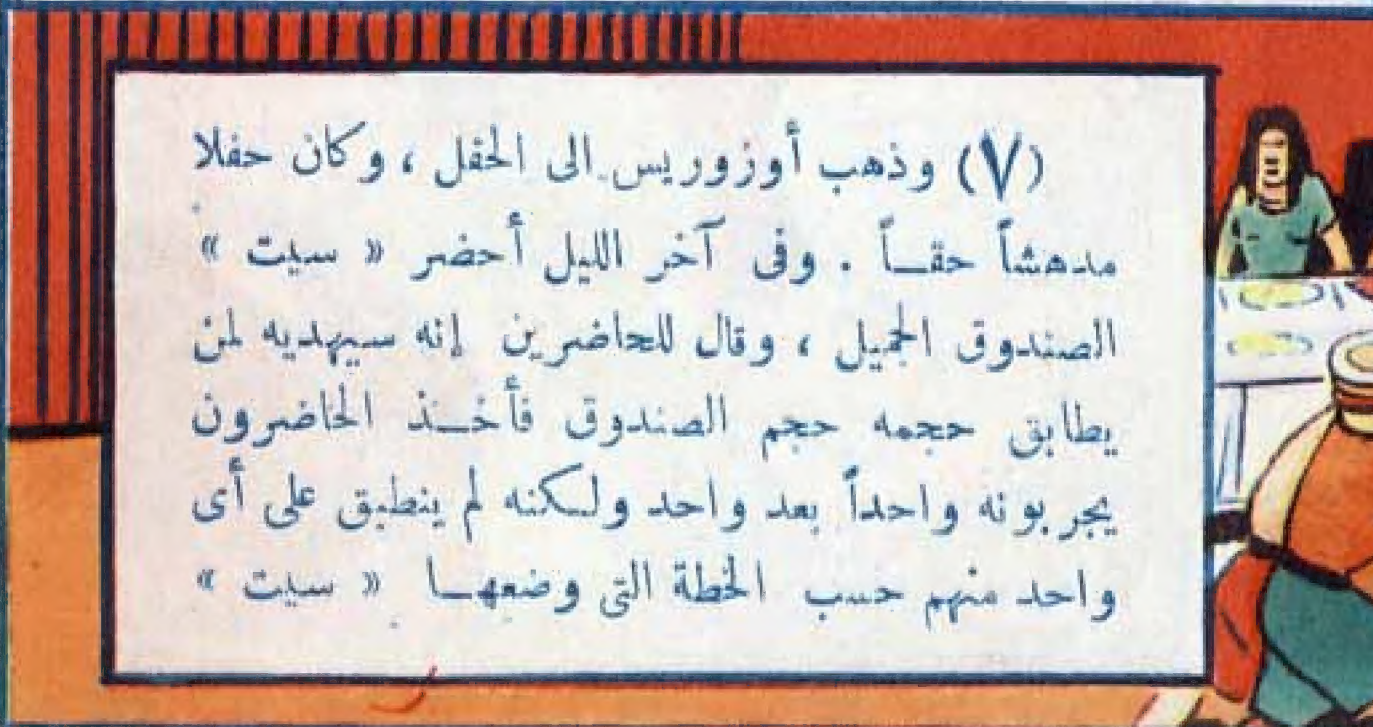 (٧) وذهب أوزوريس الى الحفل ، وكان حفلا
مدهشاً حقــاً . وفى آخر الليل أحضر « سيت »
الصندوق الجميل ، وقال للحاضرين إنه سيهديه لمن
يطابق حجمه حجم الصندوق فأخــذ الحاضرون
يجربونه واحداً بعد واحد ولـكنه لم ينطبق على أى
واحد منهم حسب الخطة التى وضعهــا « سيت »